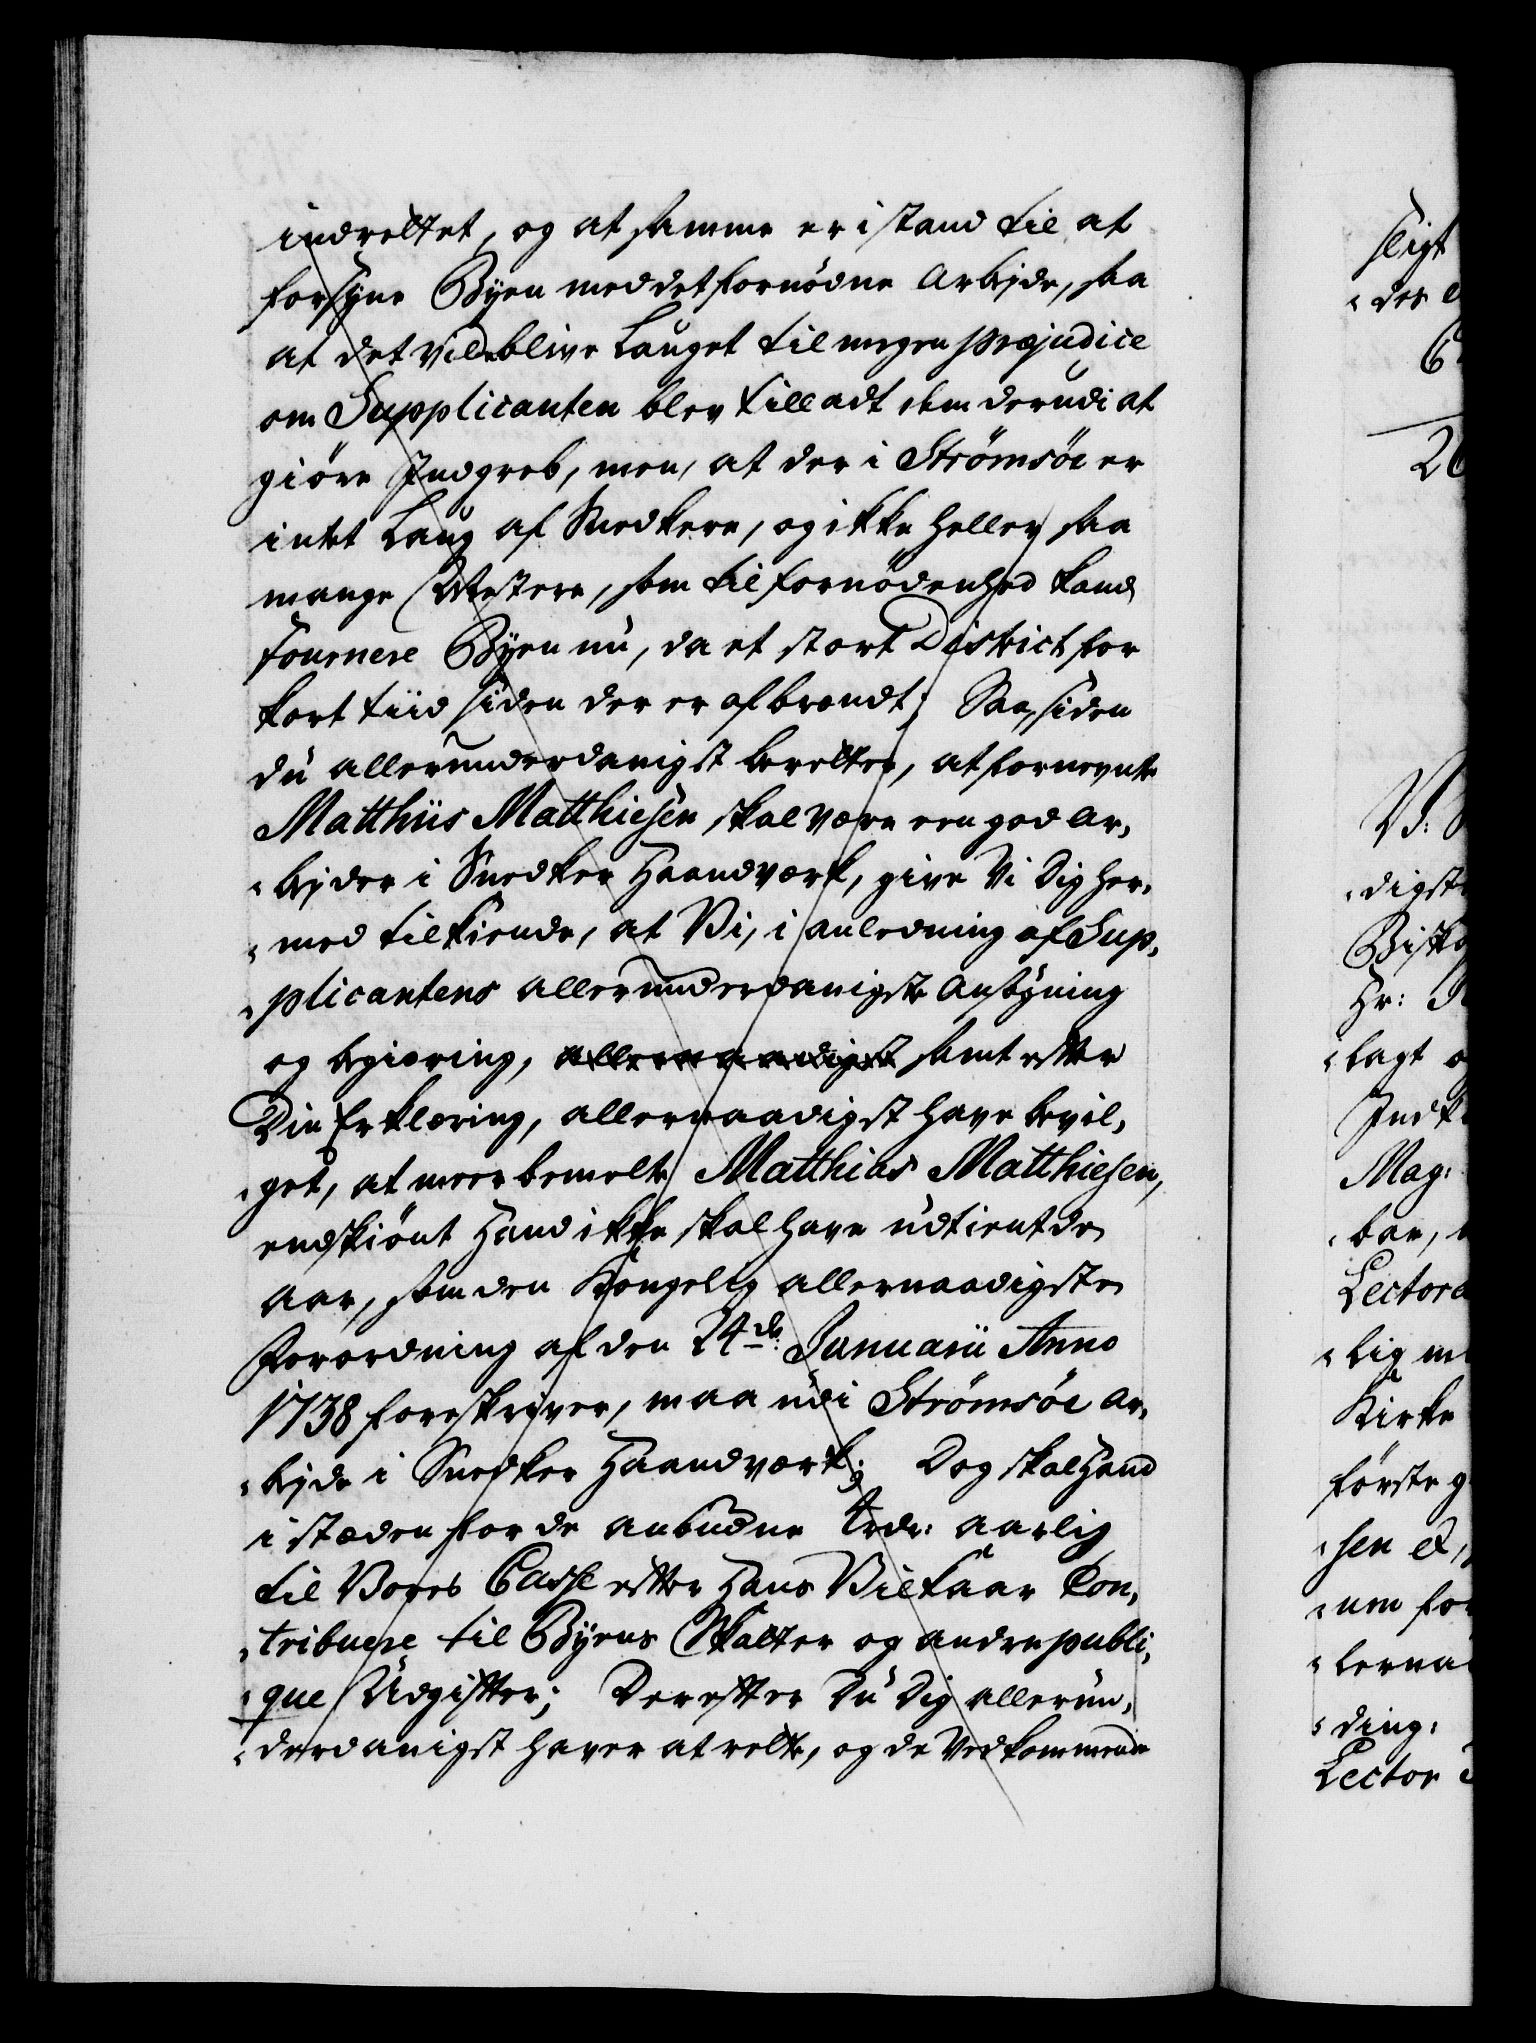 indrettet, og at samme er i stand til at
forsÿne Bÿen med det fornödne Arbejde, saa
at det vil blive Lauget til megen præjudice
om Supplicanten blev tilladt dem derudi at
giöre Indgreb, men, at der i Strömsöe er
intet Laug af Snedkere, og ikke heller saa
mange Mestere, som til fornödenhed kand
fournere Bÿen nu, da et stort District for
kort tiid siden der er afbrændt; Saa, siden
du allerunderdanigst beretter, at fornevnte
Matthiis Matthiesen skal være een god Ar,,
,,bejder i Snedker Haandværk, give Vi Dig her,,
,,med tilkiende, at Vi, i anledning af Sup,,
,,plicantens allerunderdanigste Ansögning
og begiæring, allernaadigst samt efter
Din Erklæring, allernaadigst have bevil,,
,,get, at meerbemelte Matthias Matthiesen,
endskiönt Hand ikke skal have udtient de
Aar, som den Kongelig allernaadigste
Forordning af den 24de: Januarii Anno
1738 foreskriver, maa udi Strömsöe ar,,
,,bejde i Snedker Haandværk; Dog skal Hand
i stæden for de anbudne aarlig
til Vores Casse efter Hans Vilkaar Con,,
,,tribuere til Bÿens Skatter og andre publi,,
,,que Udgifter; Derefter Du Dig allerun,,
,,derdanigst haver at rette, og de Vedkommende
sligt
,,des
26
V:
,,digst
Bisko
Hr:
,,lagt
Indk
Mag:
,,bar,
Lectora
,,lig m
Kirke
förste g
,,sen
,,nem for
,,lerna
,,ding:
Lector